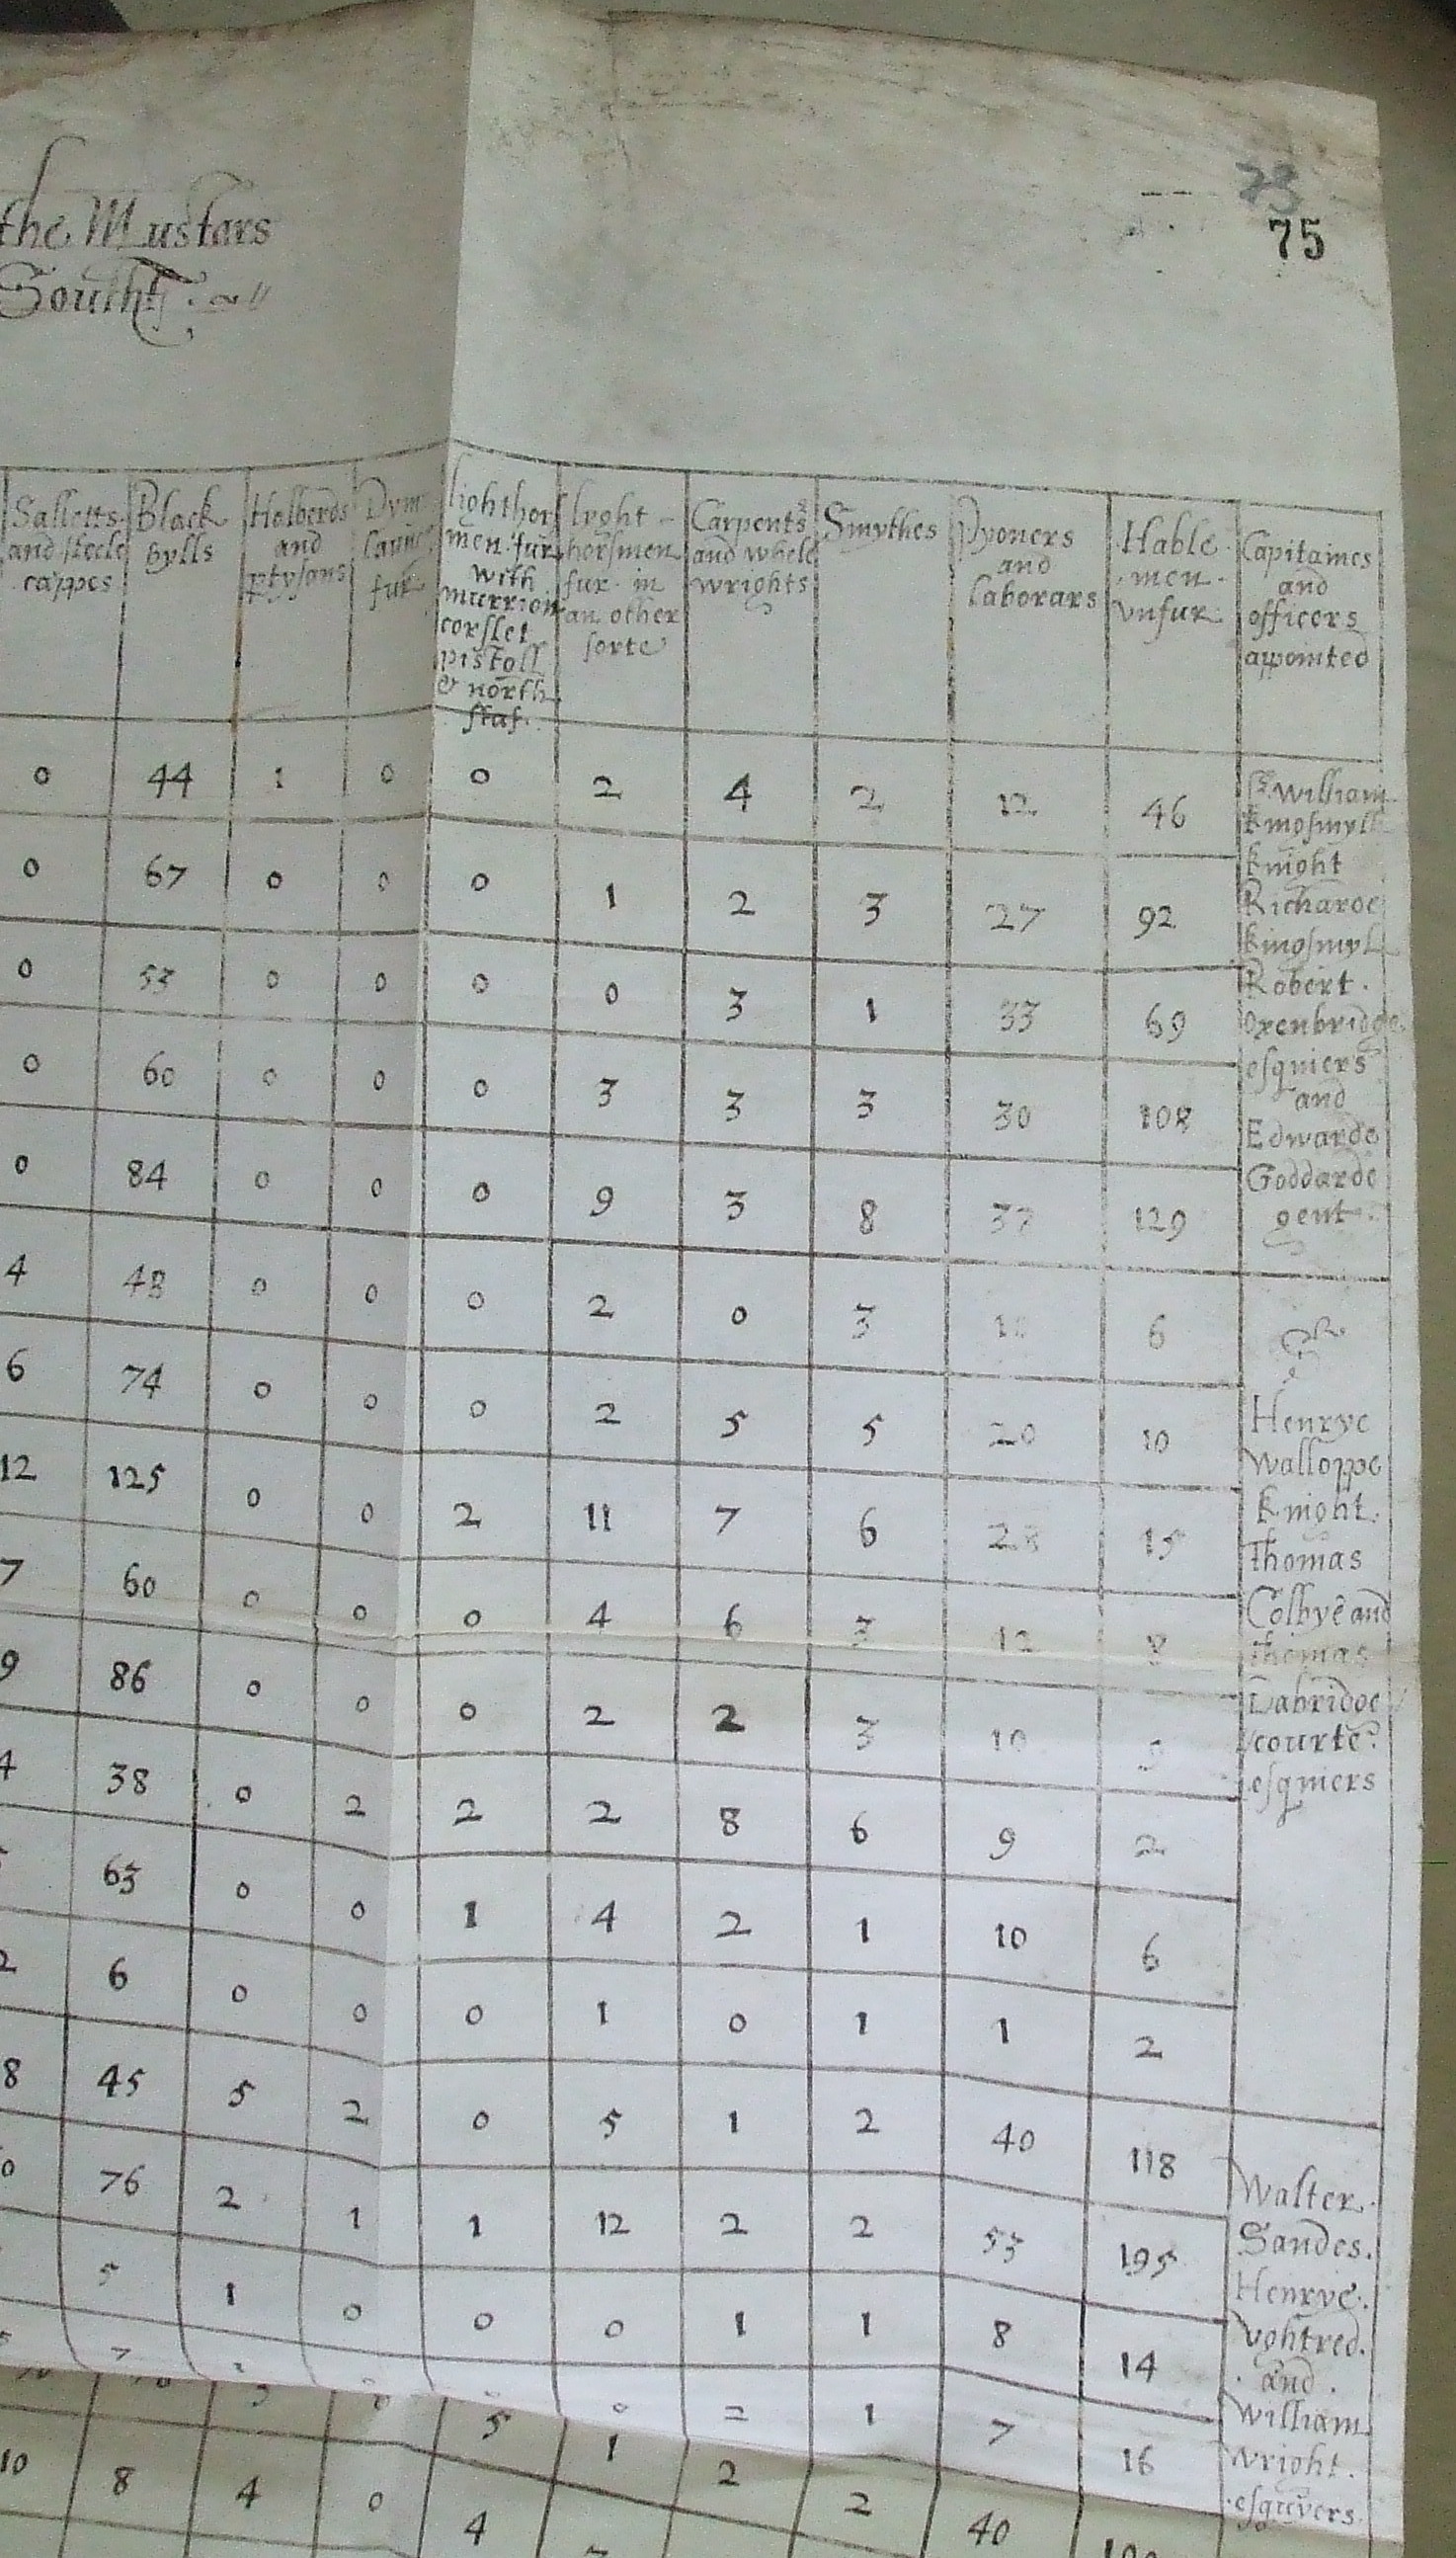 the Mustars
South
73
75
Salletts and steele cappes | Black bylls | Holberds and ptysans | Dym launc fur | lighthorsmen fur with murrion corslet pistoll & north staf. | lyght horsmen fur. in an other sorte | Carpents and whele wrights | Smythes | Pyoners and laborars | Hable men vnfur | Capitaines and officers appointed
0 44 1 0 0 2 4 2 12 46
0 67 0 0 0 1 2 3 27 92
0 53 0 0 0 0 3 1 33 69
0 60 0 0 0 3 3 3 30 108
0 84 0 0 0 9 3 8 37 129
Sr. William
kingsmyll
knight
Richarde
kingsmyl
Robert.
Oxenbridge
esquiers
and
Edwarde
Goddarde
gent.
4 48 0 0 0 2 0 3 6
6 74 0 0 0 2 5 5 20 10
12 125 0 0 2 11 7 6 28 15
7 60 0 0 0 4 6 3 12 8
9 86 0 0 0 2 2 3 10
4 38 0 2 2 2 8 6 9 2
63 0 0 1 4 2 1 10 6
2 6 0 0 0 1 0 1 1 2
Sr
Henrye
Walloppe
knight.
Thomas
Colbye and
Thomas
Dabridge
courte
esquiers
8 45 5 2 0 5 1 2 40 118
0 76 2 1 1 12 2 2 53 195
5 1 0 0 0 1 1 8 14
7 0 2 1 7 16
Walter.
Sandes.
Henrye.
vghtred.
and.
William
wright.
esquyers.
5 1 2 2 40
10 8 4 0 4